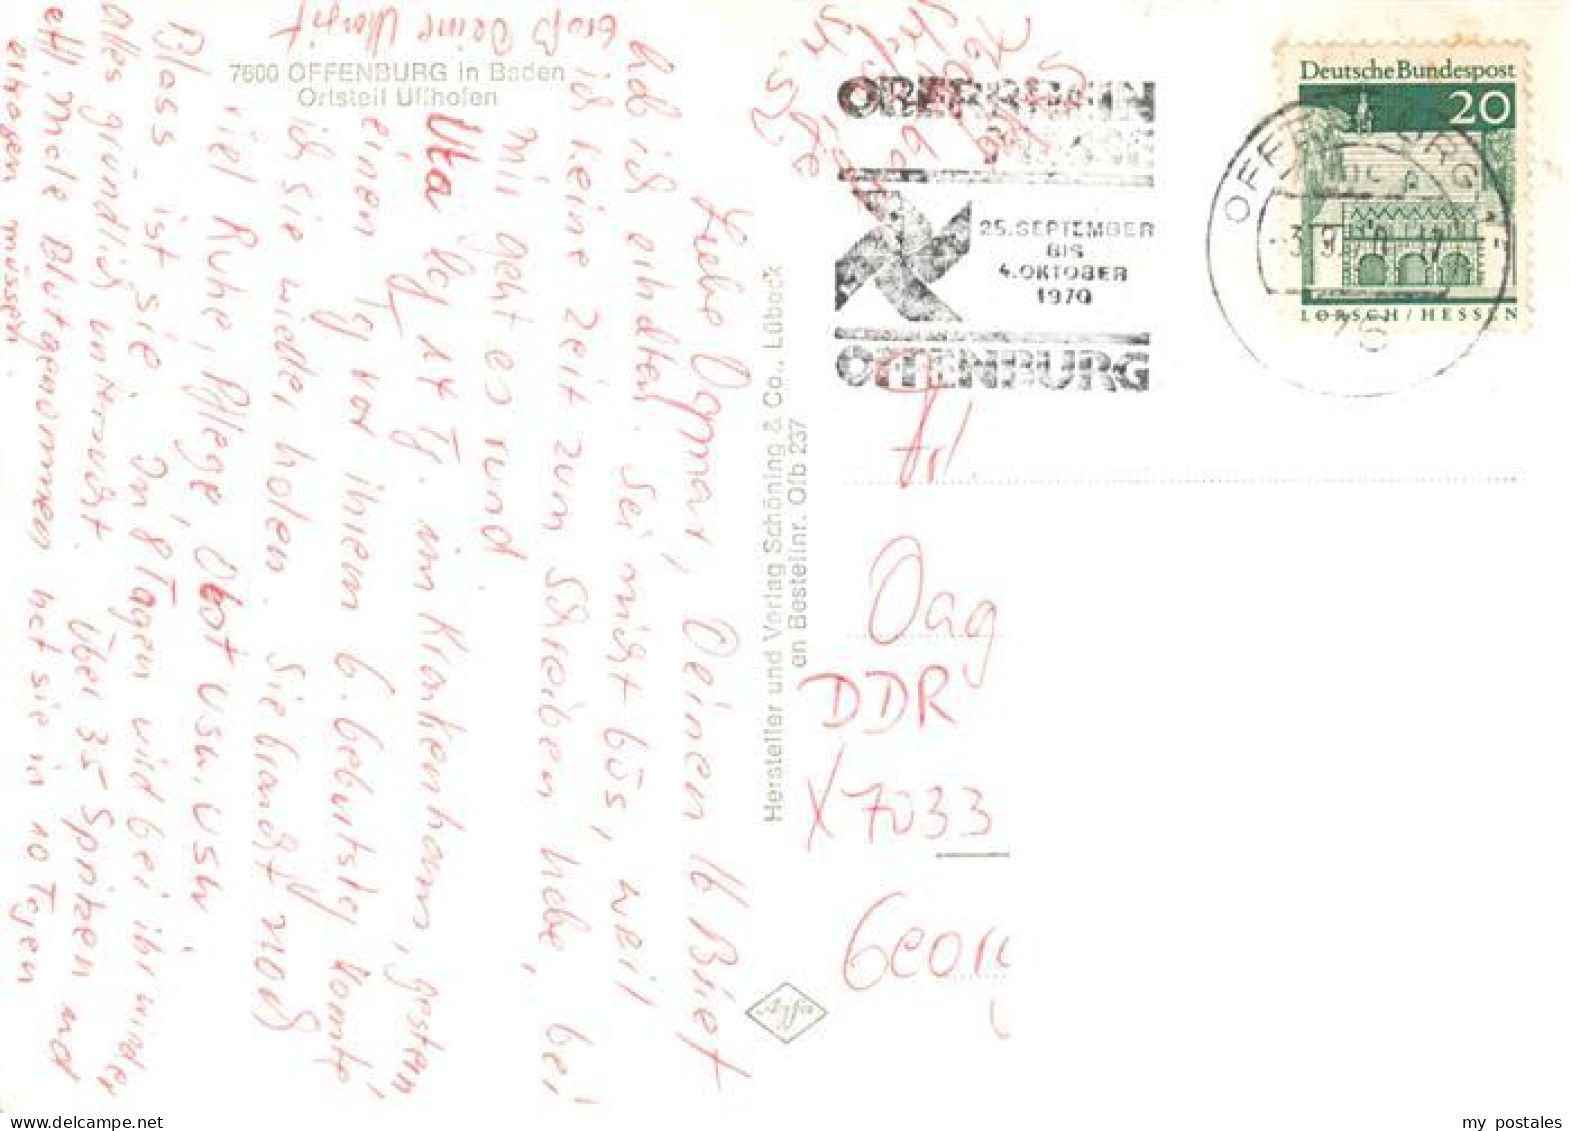 7600 OFFENBURG in Baden
Ortsteil Uffhofen
Liebe Dagmar, Deinen lb. Brief
hab ich erhalten. Sei nicht bös, weil
ich keine Zeit zum Schreiben habe, bei
mir geht es rund.
Uta lag 14 Tg. im Krankenhaus, gestern,
einen Tg vor ihrem 6. Geburtstag konnte
ich sie wieder holen. Sie braucht noch
viel Ruhe, Pflege, Obst usw. usw
Bloss ist sie. In 8 Tagen wird bei ihr wieder
alles gründlich untersucht. Über 35 Spritzen und
Blutgenommen hat sie in 10 Tagen
müssen.
Gruß Deine Margit
Hersteller und Verlag Schöning & Co., Lübeck
an Bestellnr. Ofb 237
Agfa
OBERRHEIN
25. SEPTEMBER
BIS
4. OKTOBER
1970
OFFENBURG
Deutsche Bundespost
20
LORSCH/HESSEN
OFFENBURG
76
Frl
Dag
DDR
X7033
Geor